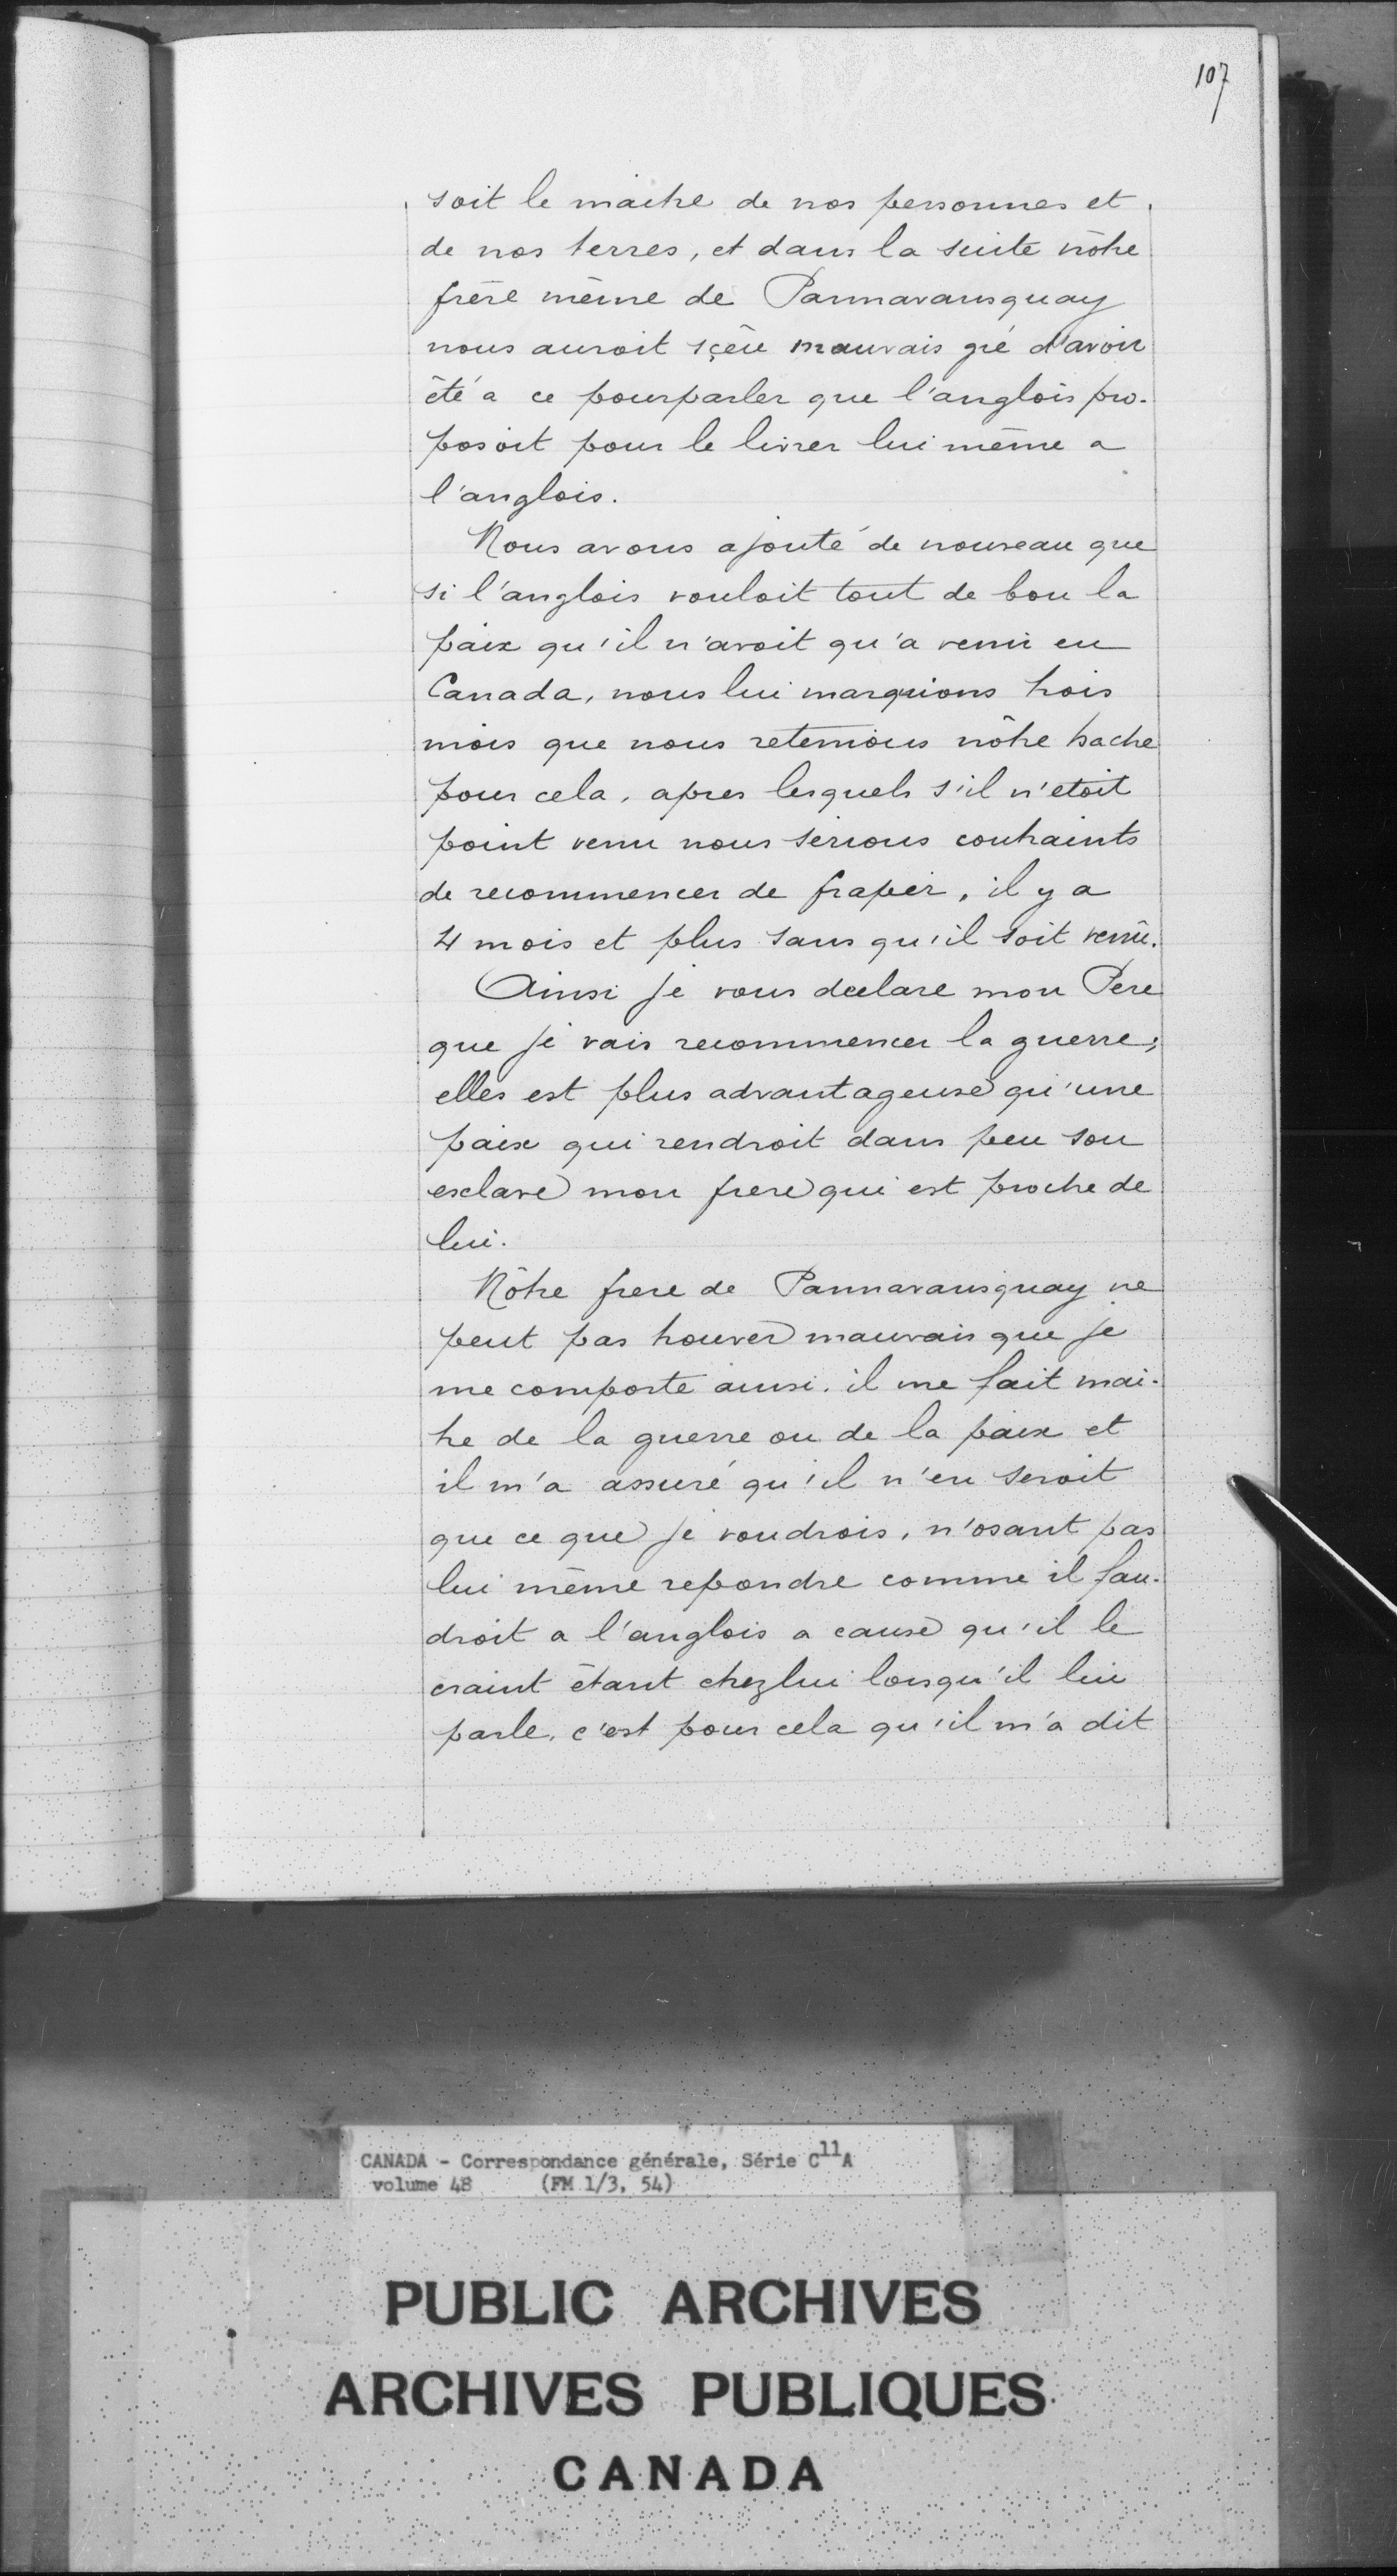 107
soit le maitre de nos personnes et
de nos terres, et dans la suite nôtre
frère même de Pannavansquay
nous auroit sçêu mauvais gré d'avoir
êté a ce pourparler que l'anglois pro-
posoit pour le livrer lui même a
l'anglois.
Nous avons ajouté de nouveau que
si l'anglois vouloit tout de bon la
paix qu'il n'avoit qu'a venir en
Canada, nous lui marquions trois
mois que nous retenions nôtre hache
pour cela, apres lesquels s'il n'etoit
point venu nous serions contraints
de recommencer de fraper, il y a
4 mois et plus sans qu'il soit venû.
Ainsi je vous declare mon Pere
que je vais recommencer la guerre;
elles est plus advantageuse qu'une
paix qui rendroit dans peu son
esclave mon frere qui est proche de
lui.
Nôtre frere de Pannavansquay ne
peut pas trouver mauvais que je
me comporte ainsi. il me fait mai-
tre de la guerre ou de la paix et
il m'a assuré qu'il n'en seroit
que ce que je voudrois, n'osant pas
lui même repondre comme il fau-
droit a l'anglois a cause qu'il le
craint étant chez lui lorsqu'il lui
parle, c'est pour cela qu'il m'a dit
CANADA - Correspondance générale, Série C11A
volume 48 (FM 1/3, 54)
PUBLIC ARCHIVES
ARCHIVES PUBLIQUES
CANADA